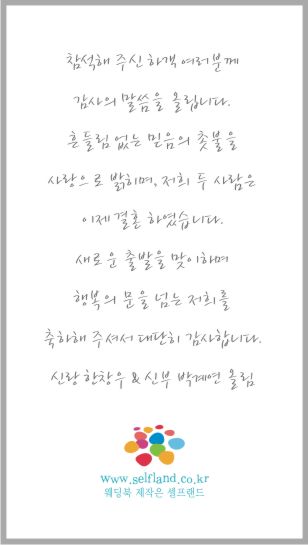 참석해 주신 하객 여러분께
감사의 말씀을 올립니다.
흔들림 없는 믿음의 촛불을
사랑으로 밝히며, 저희 두 사람은
이제 결혼 하였습니다.
새로운 출발을 맞이하며
행복의 문을 넘는 저희를
축하해 주셔서 대단히 감사합니다.
신랑 한창우 & 신부 박계연 올림
www.selfland.co.kr
웨딩북 제작은 셀프랜드